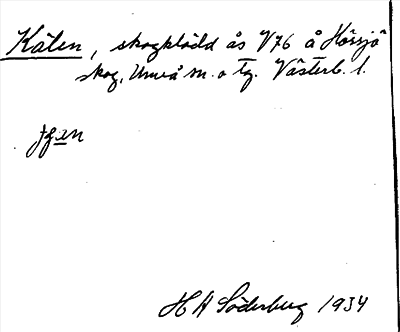 Kälen, skogklädd ås V76 å Hörsjö
skog, Umeå m. o tg. Västerb. l.
HA Söderberg 1934